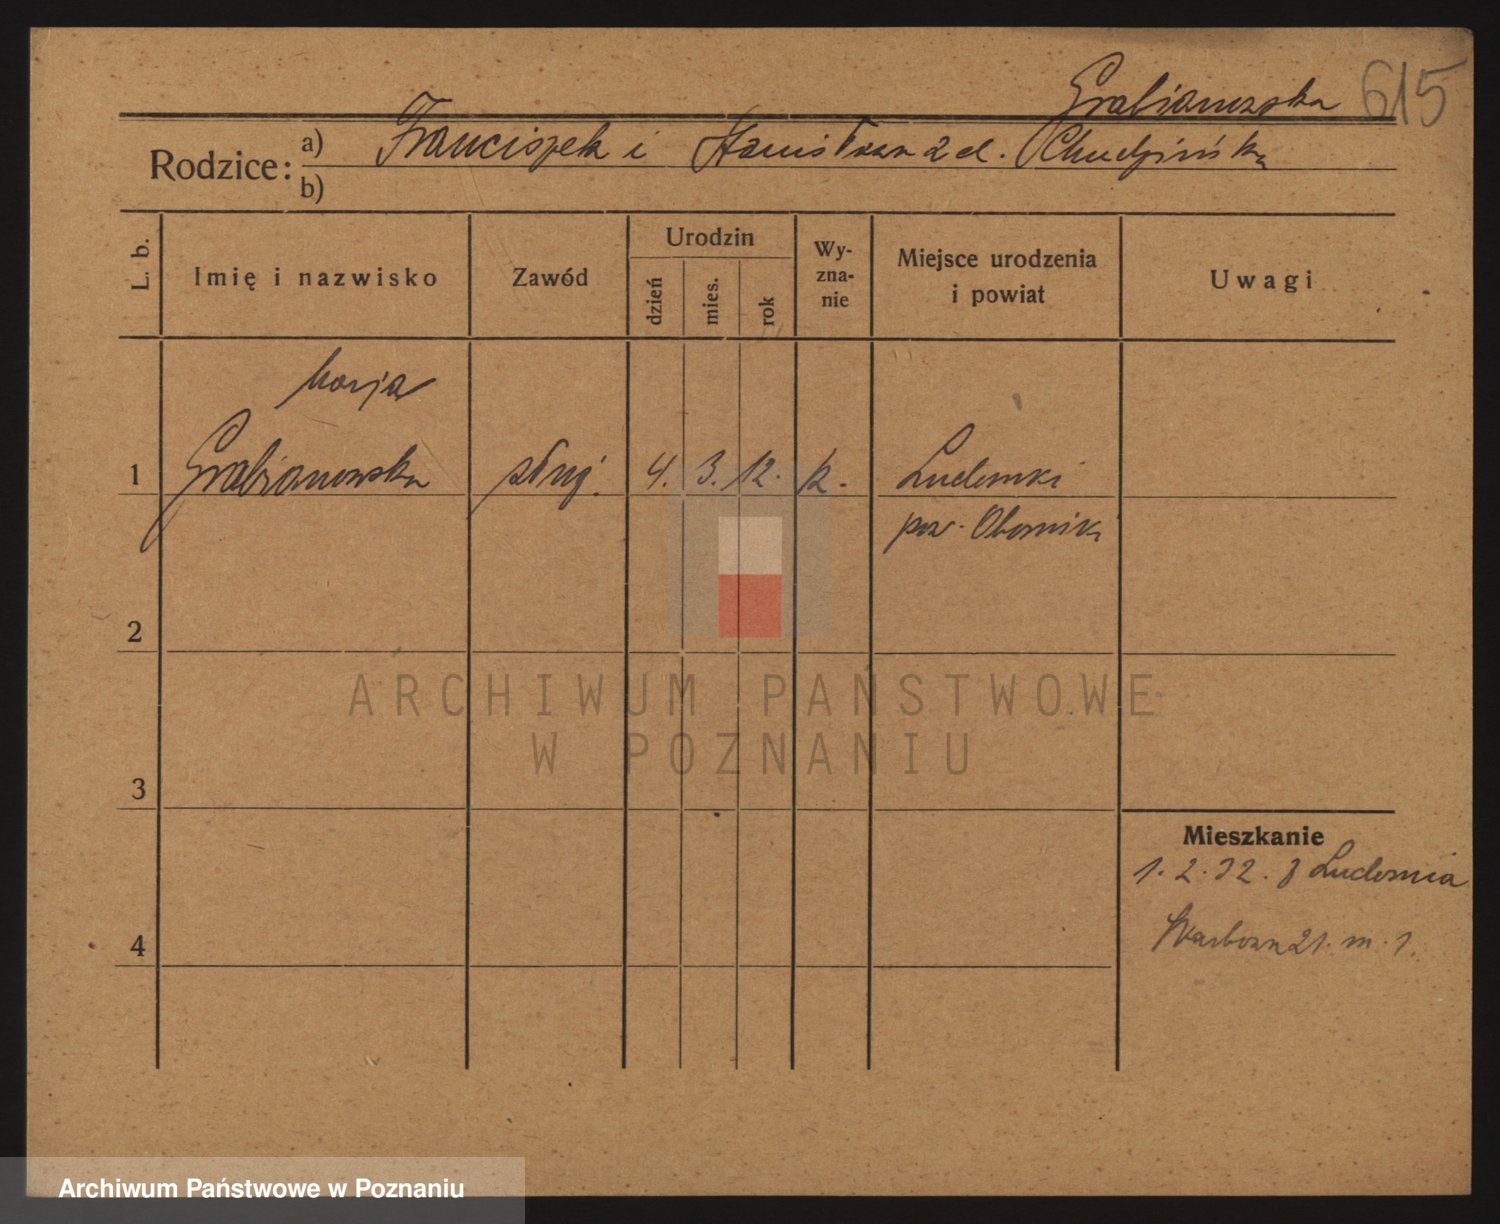 Grabianowska 615
Rodzice: a) Franciszek i Stanisława z d. Chudzińska
b)
L. b.
Imię i nazwisko
Zawód
Urodzin
dzień
mies.
rok
Wy-
zna-
nie
Miejsce urodzenia
i powiat
Uwagi
Marja
1 Grabianowska służ. 4. 3. 12. k. Ludomki
pow. Oborniki
2
3
4
Mieszkanie
1.2.32. z Ludomia
21. m. 1.
ARCHIWUM PAŃSTWOWE
W POZNANIU
Archiwum Państwowe w Poznaniu